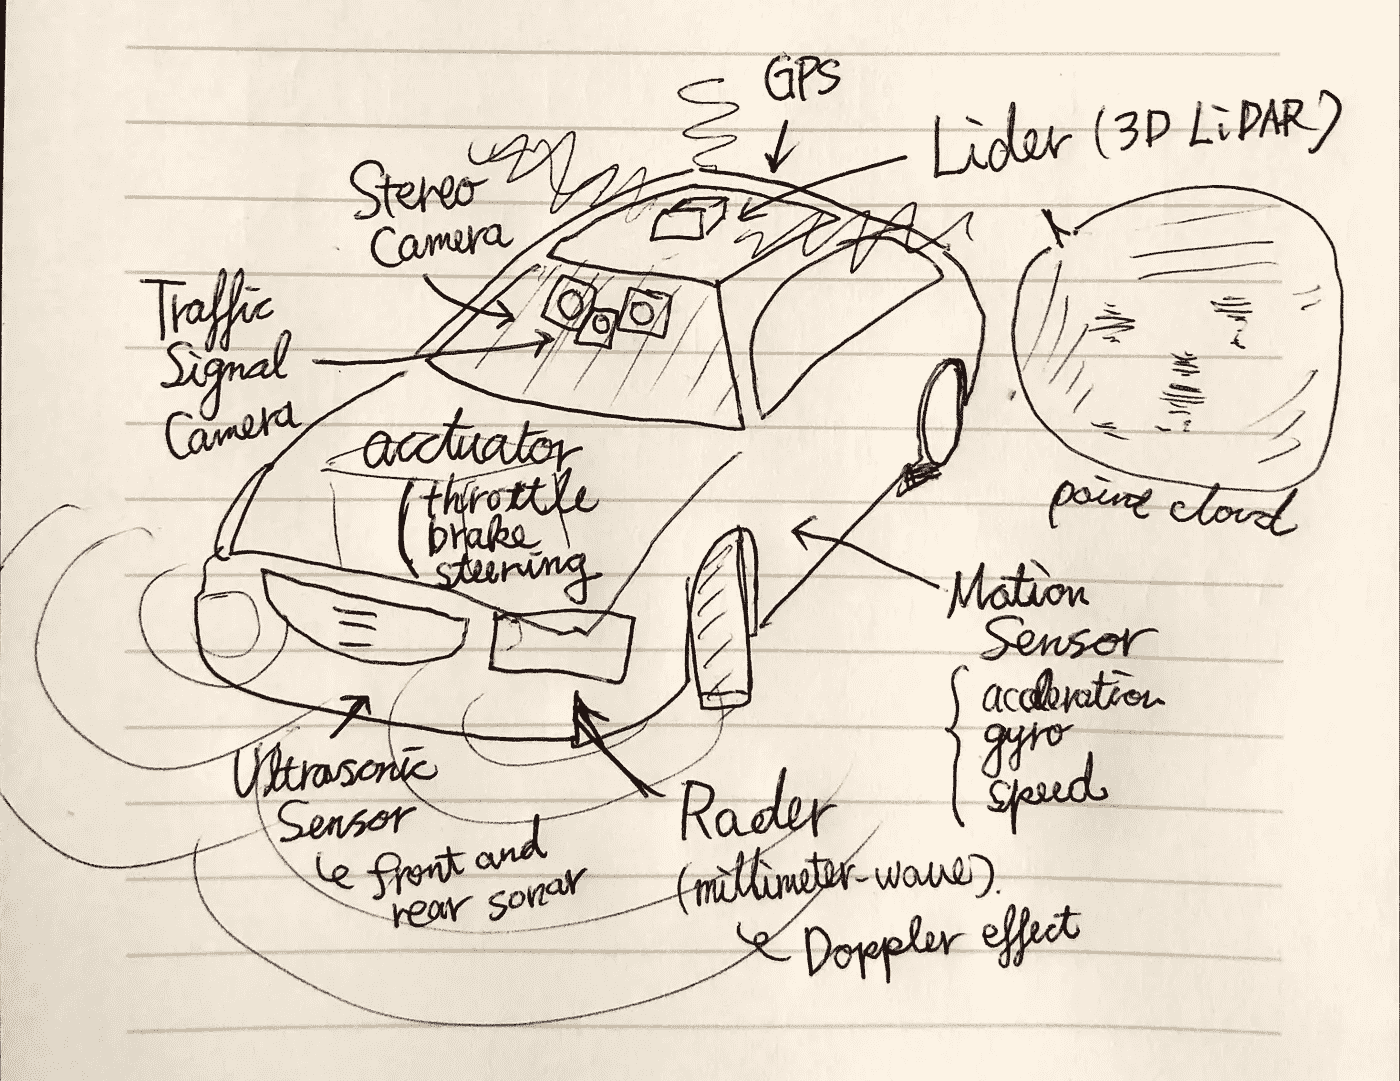 GPS
Lider (3D LiDAR)
Stereo
Camera
Traffic
Signal
Camera
acctuator
(throttle
brake
steering
point cloud
Motion
Sensor
{ accleration
gyro
speed
Ultrasonic
Sensor
↳ front and
rear sonar
Rader
(millimeter-wave).
↳ Doppler effect